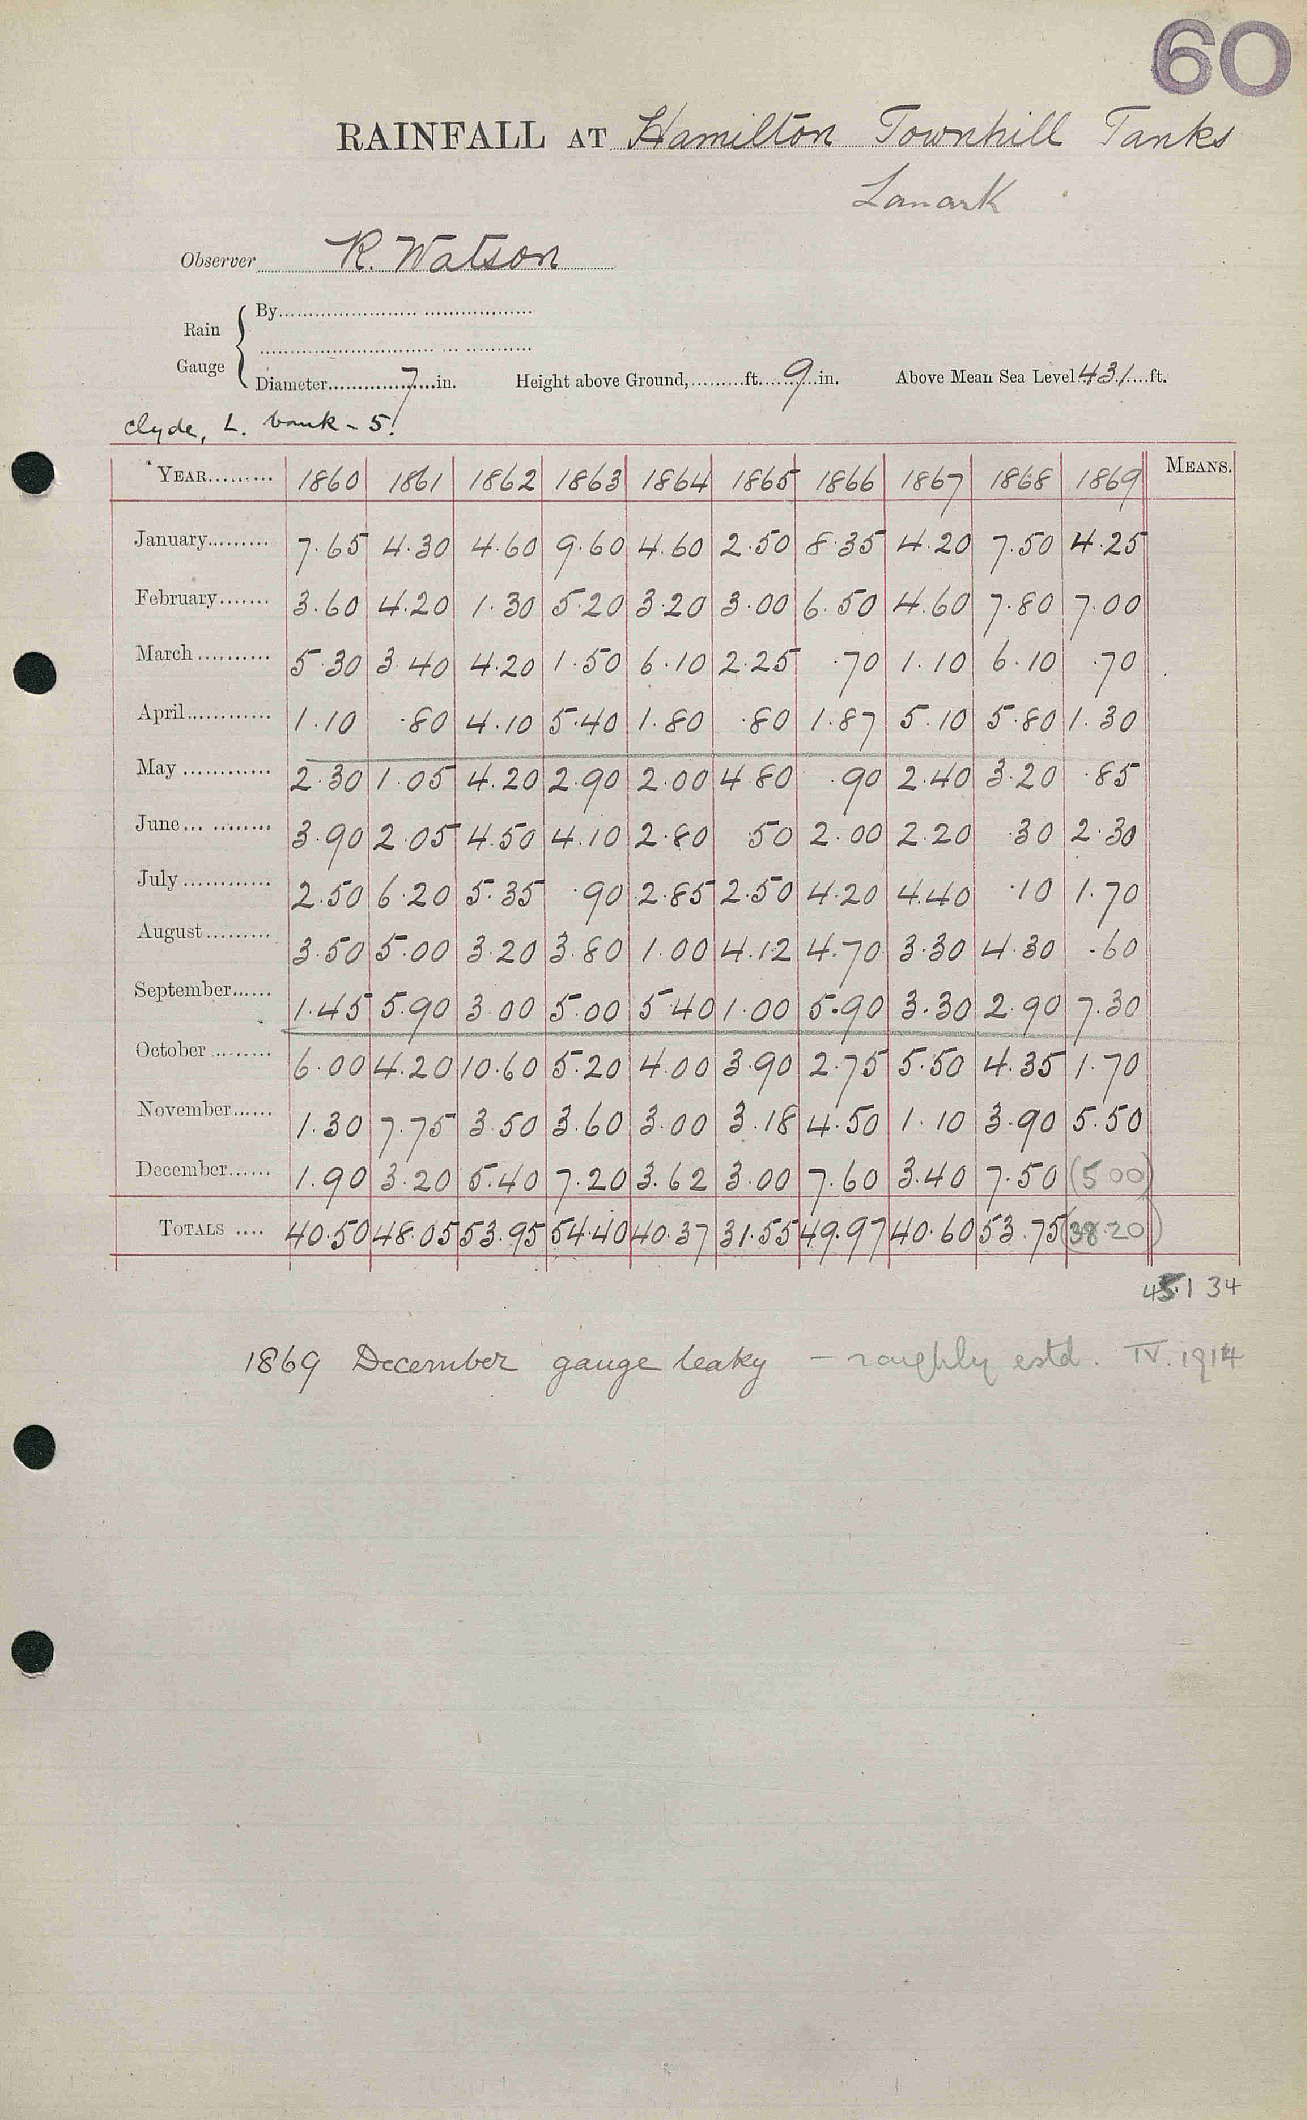 60
RAINFALL AT Hamilton Townhill Tanks
Lanark
Observer R. Watson
Rain Gauge { By
Diameter 7 in. Height above Ground, ft. 9 in. Above Mean Sea Level 431 ft.
Clyde, L. bank - 5.
YEAR 1860 1861 1862 1863 1864 1865 1866 1867 1868 1869 MEANS.
January 7.65 4.30 4.60 9.60 4.60 2.50 8.35 4.20 7.50 4.25
February 3.60 4.20 1.30 5.20 3.20 3.00 6.50 4.60 7.80 7.00
March 5.30 3.40 4.20 1.50 6.10 2.25 .70 1.10 6.10 .70
April 1.10 .80 4.10 5.40 1.80 .80 1.87 5.10 5.80 1.30
May 2.30 1.05 4.20 2.90 2.00 4.80 .90 2.40 3.20 .85
June 3.90 2.05 4.50 4.10 2.80 50 2.00 2.20 .30 2.30
July 2.50 6.20 5.35 .90 2.85 2.50 4.20 4.40 .10 1.70
August 3.50 5.00 3.20 3.80 1.00 4.12 4.70 3.30 4.30 .60
September 1.45 5.90 3.00 5.00 5.40 1.00 5.90 3.30 2.90 7.30
October 6.00 4.20 10.60 5.20 4.00 3.90 2.75 5.50 4.35 1.70
November 1.30 7.75 3.50 3.60 3.00 3.18 4.50 1.10 3.90 5.50
December 1.90 3.20 5.40 7.20 3.62 3.00 7.60 3.40 7.50 (5.00)
TOTALS 40.50 48.05 53.95 54.40 40.37 31.55 49.97 40.60 53.75 (38.20)
45.1 34
1869 December gauge leaky - roughly estd. IV. 1914